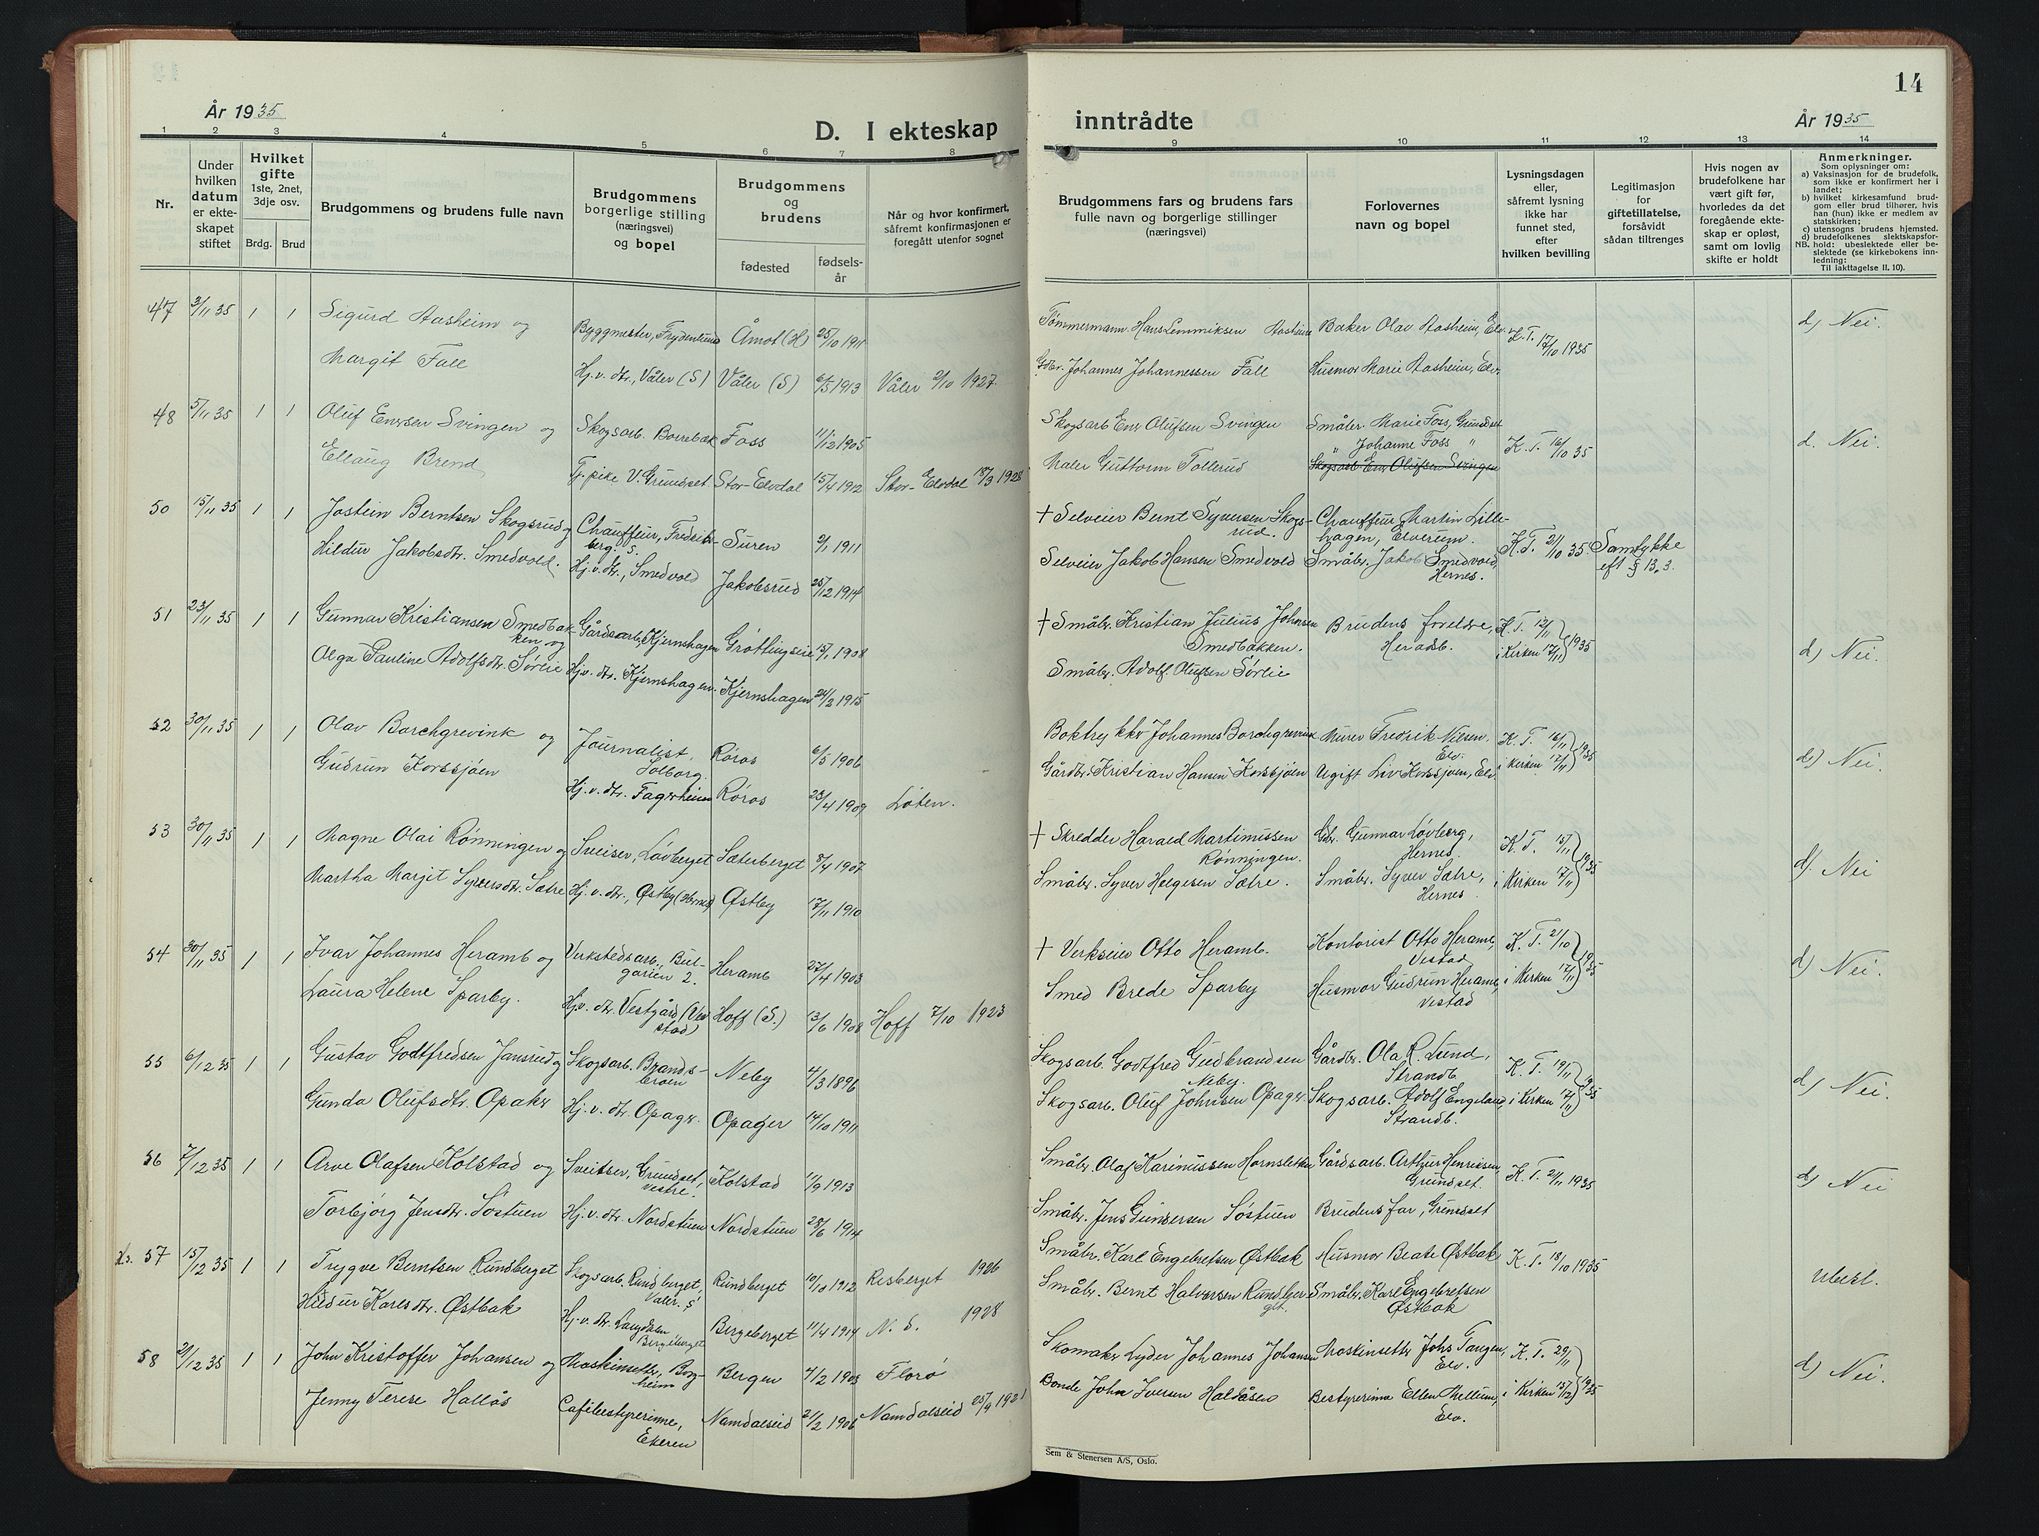 14
År 1935
D. I ekteskap
inntrådte
År 1935
1 2 3 4 5 6 7 8 9 10 11 12 13 14
Nr.
Under
hvilken
datum
er ekte-
skapet
stiftet
Hvilket
gifte
1ste, 2net,
3dje osv.
Brdg. Brud
Brudgommens og brudens fulle navn
Brudgommens
borgerlige stilling
(næringsvei)
og bopel
Brudgommens
og
brudens
fødested
fødsels-
år
Når og hvor konfirmert,
såfremt konfirmasjonen er
foregått utenfor sognet
Brudgommens fars og brudens fars
fulle navn og borgerlige stillinger
(næringsvei)
Forlovernes
navn og bopel
Lysningsdagen
eller,
såfremt lysning
ikke har
funnet sted,
efter
hvilken bevilling
Legitimasjon
for
giftetillatelse,
forsåvidt
sådan tiltrenges
Hvis nogen av
brudefolkene har
vært gift før,
hvorledes da det
foregående ekte-
skap er opløst,
samt om lovlig
skifte er holdt
Anmerkninger.
Som oplysninger om:
a) Vaksinasjon for de brudefolk,
som ikke er konfirmert her i
landet;
b) hvilket kirkesamfund brud-
gom eller brud tilhører, hvis
han (hun) ikke er medlem av
statskirken;
c) utensogns brudens hjemsted.
d) brudefolkenes slektskapsfor-
NB. hold: ubeslektede eller be-
slektede (se kirkebokens inn-
ledning:
Til iakttagelse II. 10).
47 3/11 35 1 1 Sigurd Aasheim og Byggmester, Frydenlund Åmot (H) 25/10 1911
Tömmermann Hans Lemmiksen Aasheim Baker Olav Aasheim, Elv. K.T. 17/10 1935 d) Nei.
Margit Fall Hj.v. dtr., Våler (S) Våler (S) 6/5 1913 Våler 2/10 1927.
Gdbr. Johannes Johannessen Fall Husmor Marie Aasheim, Elv.
48 5/11 35 1 1 Oluf Enersen Svingen og Skogsarb. Borrebæk Foss 11/12 1905
Skogsarb Ener Olufsen Svingen Småbr. Marie Foss, Grundset
" Johanne Foss " K.T. 16/10 35 d. Nei.
Ellaug Brend Tj.pike V. Grundset Stor-Elvdal 15/4 1912 Stor-Elvdal 18/3 1928
Maler Guttorm Tollerud Skogsarb Ener Olufsen Svingen
50 15/11 35 1 1 Jostein Berntsen Skogsrud og Chauffeur, Fredrik-
berg. S. Suren 2/1 1911
+ Selveier Bernt Syversen Skogs-
rud. Chauffeur Martin Lille-
hagen, Elverum. K.T. 21/10 35 Samtykke
eft § 13.3.
Hildur Jakobsdtr. Smedvold. Hj.v. dtr., Smedvold Jakobsrud 25/12 1914
Selveier Jakob Hansen Smedvold Småbr. Jakob Smedvold,
Hernes.
51 23/11 35 1 1 Gunnar Kristiansen Smedbak-
ken og Gårdsarb., Kjernshagen Grøttingseie 15/1 1908
+ Småbr. Kristian Julius Johnsen
Smedbakken. Brudens foreldre,
Heradb. K.T. 12/11
i Kirken 17/11 } 1935 d) Nei.
Olga Pauline Adolfsdtr. Sørlie Hj.v. dtr. Kjernshagen. Kjernshagen 24/2 1915
Småbr. Adolf Olufsen Sørlie
52 30/11 35 1 1 Olav Borchgrevink og Journalist,
Solborg. Røros 6/5 1906
Boktrykkr Johannes Borchgrevink Murer Fredrik Nilsen.
Elv. K.T. 16/11
i Kirken 17/11 } 1935 d) Nei.
Gudrun Korssjøen Hj.v. dtr. Fagerheim Røros 23/4 1909 Løten.
Gårdbr. Kristian Hansen Korssjøen Ugift Liv Korssjoen, Elv.
53 30/11 35 1 1 Magne Olai Rønningen og Sveiser, Løvberget Sæterberget 8/4 1907
+ Skredder Harald Martinussen
Rønningen. Gbr. Gunnar Løvberg,
Hernes. K.T. 15/11
i Kirken 17/11 } 1935 d). Nei
Martha Margit Syversdtr. Sætre Hj.v. dtr., Østby (Hernes) Østby 17/11 1910
Småbr. Syver Helgesen Sætre. Småbr. Syver Sætre,
Hernes
54 30/11 35 1 1 Ivar Johannes Heramb og Verkstedsarb., Bul-
garien 2. Heramb 27/4 1903
+ Verkseier Otto Heramb. Kontorist Otto Heramb,
Vestad K.T. 21/10
i Kirken 17/11 } 1935 d) Nei.
Laura Helene Sparby. Hj.v. dtr. Vestgård (Ves-
stad) Hoff (S.) 13/6 1908 Hoff 7/10 1923
Smed Brede Sparby Husmor Gudrun Heramb,
Vestad
55 6/12 35 1 1 Gustav Godtfredsen Jansrud og Skogsarb. Brands-
broen Neby 4/3 1896
Skogsarb. Godtfred Gudbrandsen
Neby. Gårdbr. Ola R. Lund,
Strandb. K.T. 19/11
i Kirken 17/11 } 1935 d) Nei.
Gunda Olufsdtr. Opakr Hj.v. dtr Opagr. Opager 14/10 1911
Skogsarb. Oluf Johnsen Opager Skogsarb. Adolf Engelund,
Strandb.
56 7/12 35 1 1 Arve Olafsen Kolstad og Sveitser, Grundset,
vestre. Kolstad 11/9 1913
Småbr. Olaf Karinussen Hornsletten Gårdsarb. Arthur Henriksen,
Grundset. K.T. 21/11 1935 d) Nei
Torbjørg Jensdtr. Søstuen Hj.v. dtr. Nordstuen Nordstuen 28/6 1914
Småbr. Jens Gundersen Søstuen Brudens far, Grundset
57 15/12 35 1 1 Trygve Berntsen Rundberget Skogsarb. Rundberget,
Våler. S Rundberget 10/10 1912 Risberget 1926
Småbr. Karl Engebretsen Østbak Husmor Beate Østbak K.T. 18/10 1935 Ubesl.
Hildur Karlsdtr. Østbak Hj.v. dtr. Langdalen
Bergeberget Bergeberget 11/4 1914 N. S. 1928
Småbr. Bernt Halvorsen Rundber-
get. Småbr. Karl Engebretsen
Østbak
58 21/12 35 1 1 John Kristoffer Johansen og Maskinsetter, Borg-
heim Bergen 4/2 1905 Florø
Skomaker Lyder Johannes Johansen Maskinsettr Johs Tangen,
Elv. K.T. 29/11
i Kirken 15/12 } 1935 d) Nei.
Jenny Terese Hallås Cafébestyrerinne,
Ekeren Namdalseid 21/2 1906 Namdalseid 25/9 1921
Bonde John Iversen Haldåsen Bestyrerinne Ellen Mellum,
Elv.
Sem & Stenersen A/S, Oslo.